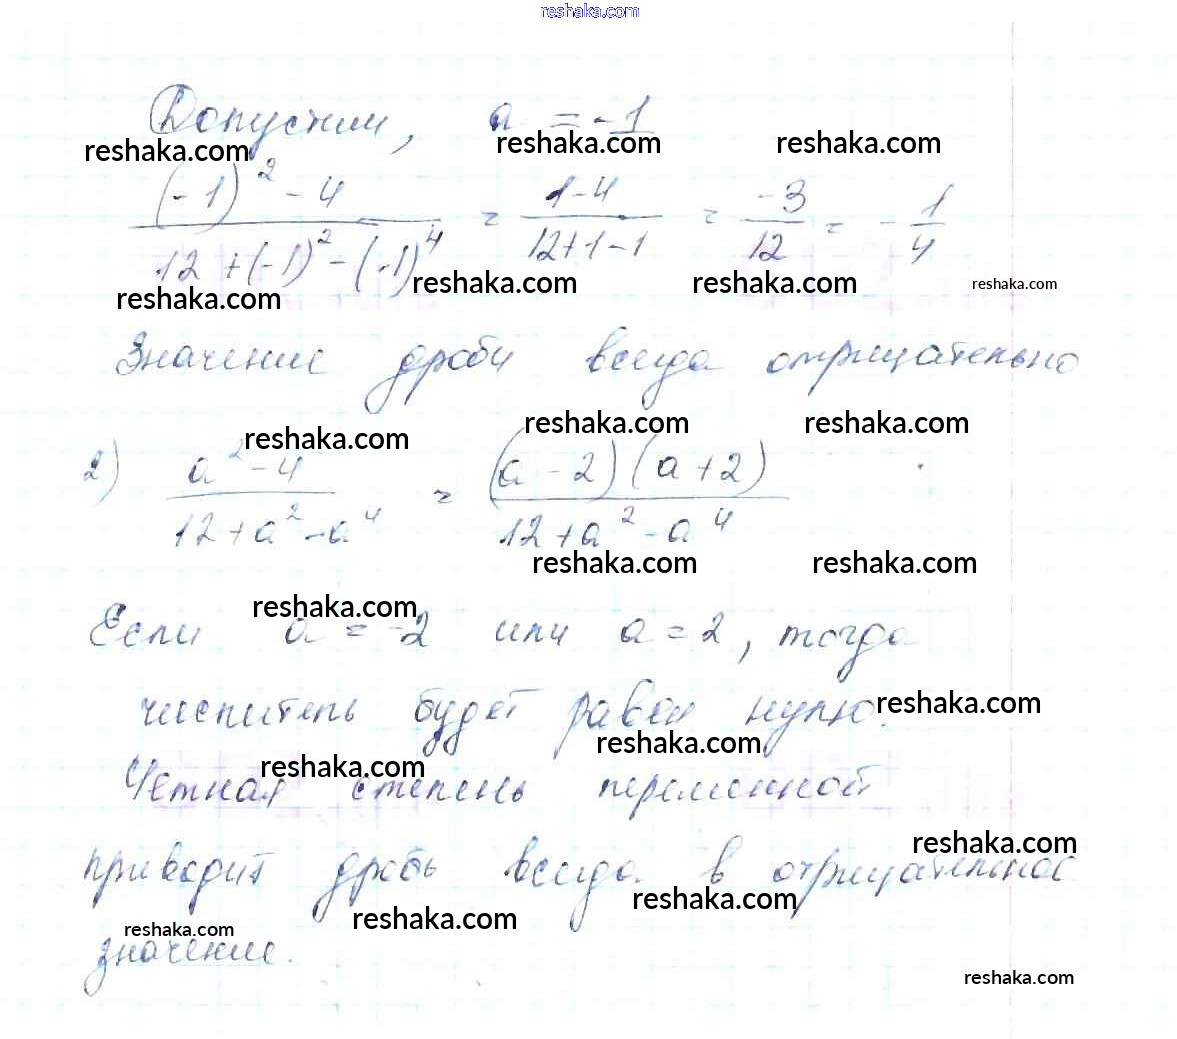 reshaka.com
Допустим, a = -1
reshaka.com reshaka.com reshaka.com
(-1)² - 4 / 12 + (-1)² - (-1)⁴ = 1-4 / 12+1-1 = -3 / 12 = - 1 / 4
reshaka.com reshaka.com reshaka.com reshaka.com
Значение дроби всегда отрицательно
reshaka.com reshaka.com reshaka.com
2) a² - 4 / 12 + a² - a⁴ = (a - 2)(a + 2) / 12 + a² - a⁴
reshaka.com reshaka.com
reshaka.com
Если a = -2 или a = 2, тогда
числитель будет равен нулю.
reshaka.com
reshaka.com
reshaka.com
Четная степень переменной
reshaka.com
приводит дробь всегда в отрицательное
reshaka.com reshaka.com
reshaka.com
значение.
reshaka.com